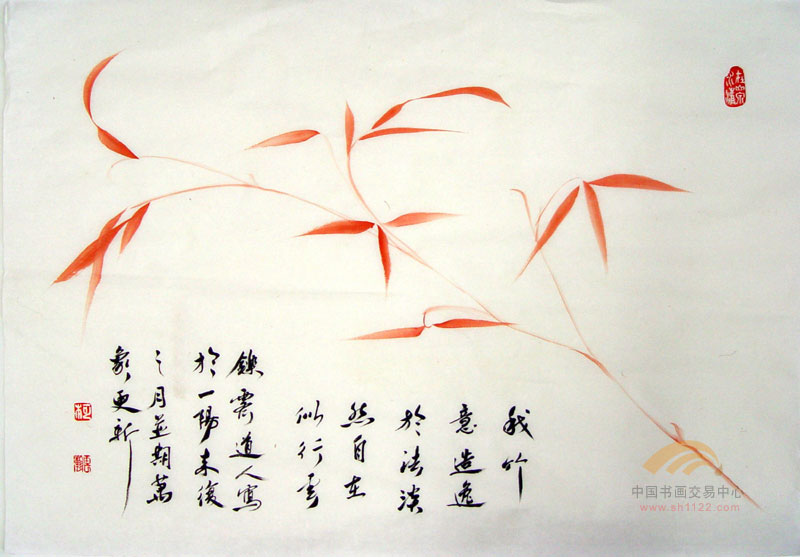 我竹
意造逸
於法淡
然自在
似行雲
道人寫
於一陽來復
之月並期萬
象更新
中国书画交易中心
www.sh1122.com